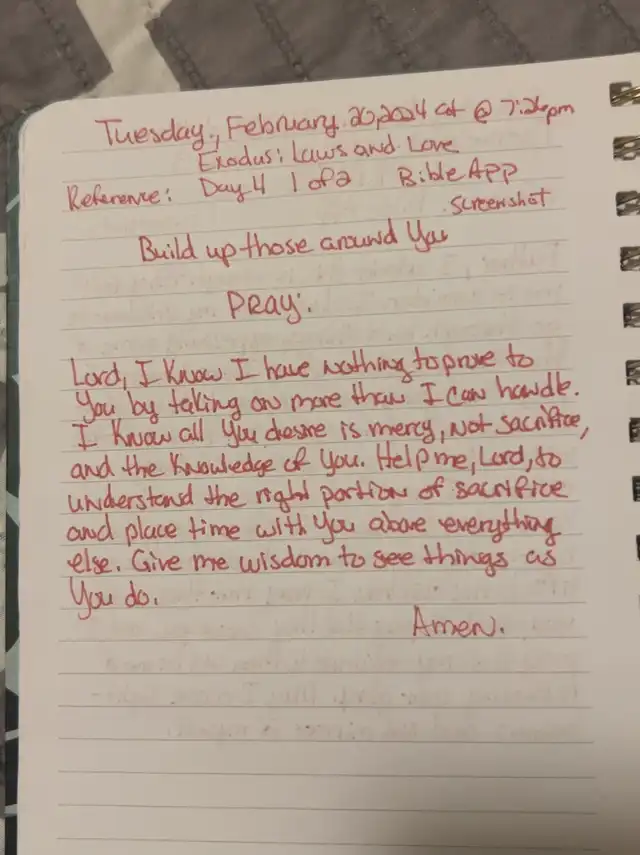 Tuesday, February 20, 2024 at @ 7:26pm
Exodus: Laws and Love
Reference: Day 4 1 of 2 Bible App
Screenshot
Build up those around You
Pray:
Lord, I know I have nothing to prove to
You by taking on more than I can handle.
I know all You desire is mercy, not sacrifice,
and the knowledge of You. Help me, Lord, to
understand the right portion of sacrifice
and place time with You above everything
else. Give me wisdom to see things as
You do.
Amen.